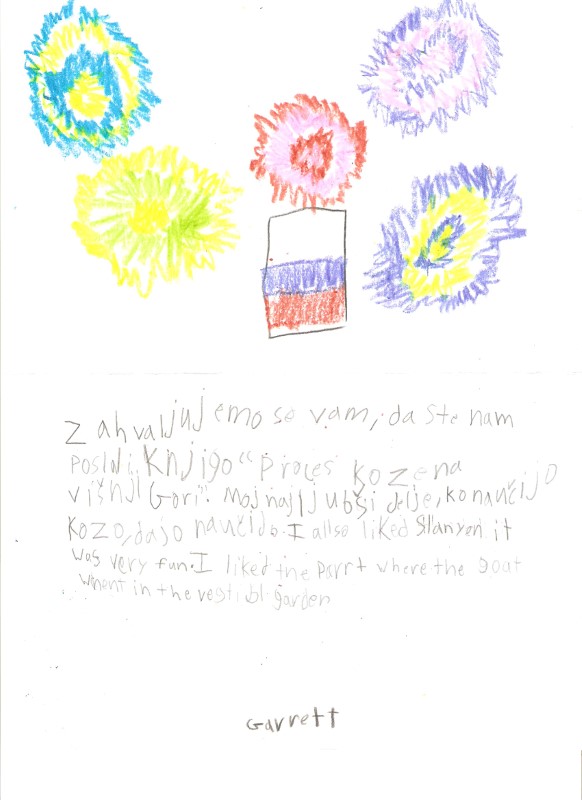 Zahvaljujemo se vam, da ste nam
poslali knjigo "Proces kozena
višnji Gori". Moj najljubši delje, ko naučijo
kozo, da jo naučijo. I allso liked
it
was very fun. I liked the parrt where the goat
whent in the vegti bl garden
Garrett